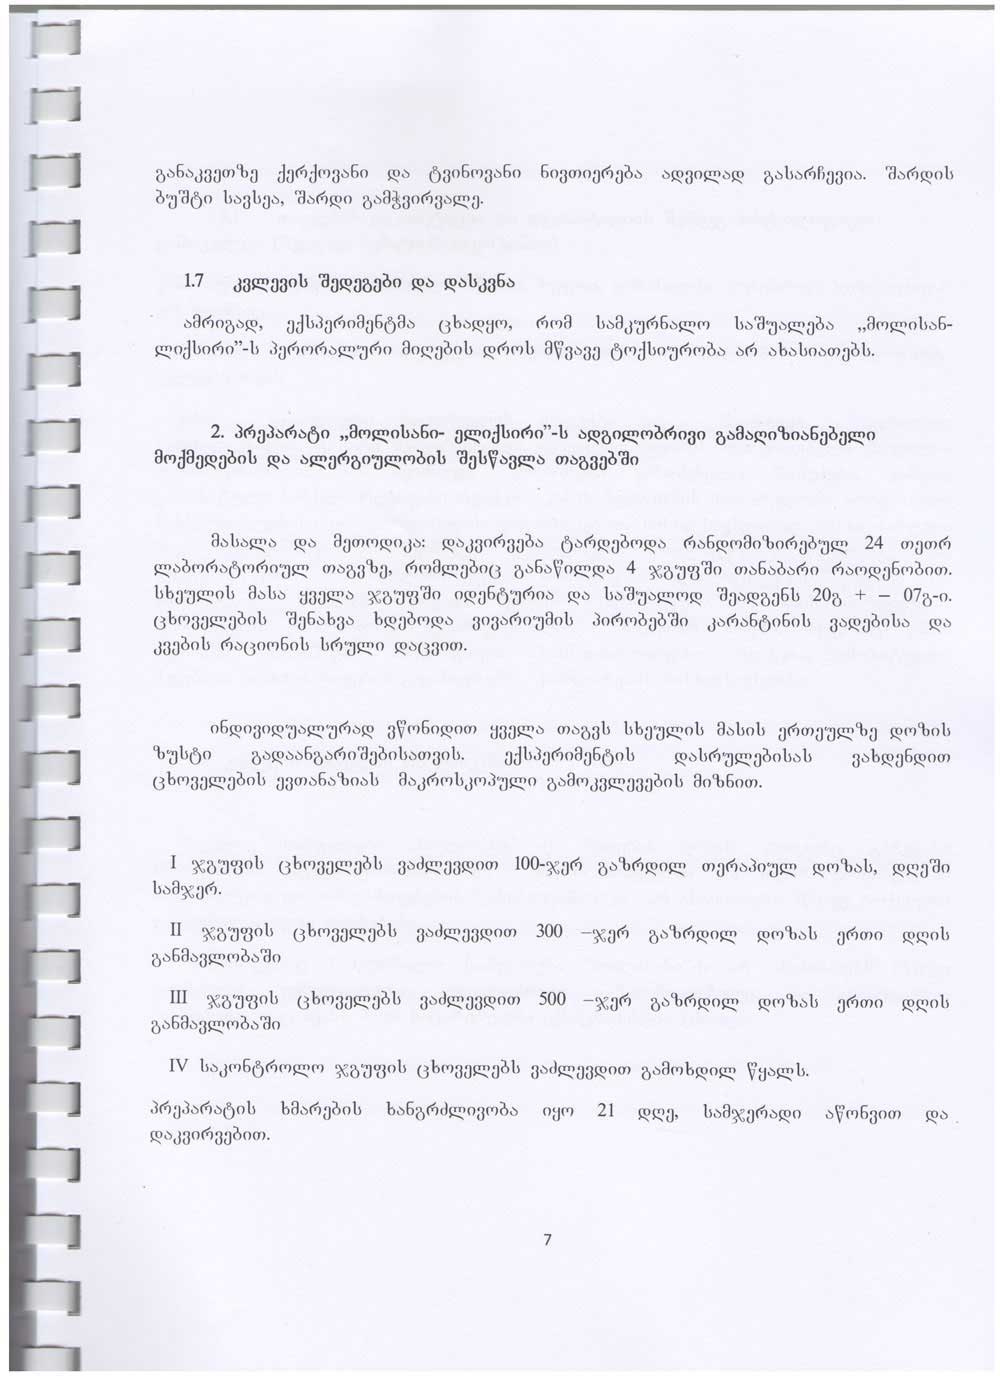 განაკვეთზე ქერქოვანი და ტვინოვანი ნივთიერება ადვილად გასარჩევია. შარდის
ბუშტი სავსეა, შარდი გამჭვირვალე.
1.7 კვლევის შედეგები და დასკვნა
ამრიგად, ექსპერიმენტმა ცხადყო, რომ სამკურნალო საშუალება „მოლისან-
ლიქსირი”-ს პერორალური მიღების დროს მწვავე ტოქსიურობა არ ახასიათებს.
2. პრეპარატი „მოლისანი- ელიქსირი”-ს ადგილობრივი გამაღიზიანებელი
მოქმედების და ალერგიულობის შესწავლა თაგვებში
მასალა და მეთოდიკა: დაკვირვება ტარდებოდა რანდომიზირებულ 24 თეთრ
ლაბორატორიულ თაგვზე, რომლებიც განაწილდა 4 ჯგუფში თანაბარი რაოდენობით.
სხეულის მასა ყველა ჯგუფში იდენტურია და საშუალოდ შეადგენს 20გ + – 07გ-ი.
ცხოველების შენახვა ხდებოდა ვივარიუმის პირობებში კარანტინის ვადებისა და
კვების რაციონის სრული დაცვით.
ინდივიდუალურად ვწონიდით ყველა თაგვს სხეულის მასის ერთეულზე დოზის
ზუსტი გადაანგარიშებისათვის. ექსპერიმენტის დასრულებისას ვახდენდით
ცხოველების ევთანაზიას მაკროსკოპული გამოკვლევების მიზნით.
I ჯგუფის ცხოველებს ვაძლევდით 100-ჯერ გაზრდილ თერაპიულ დოზას, დღეში
სამჯერ.
II ჯგუფის ცხოველებს ვაძლევდით 300 –ჯერ გაზრდილ დოზას ერთი დღის
განმავლობაში
III ჯგუფის ცხოველებს ვაძლევდით 500 –ჯერ გაზრდილ დოზას ერთი დღის
განმავლობაში
IV საკონტროლო ჯგუფის ცხოველებს ვაძლევდით გამოხდილ წყალს.
პრეპარატის ხმარების ხანგრძლივობა იყო 21 დღე, სამჯერადი აწონვით და
დაკვირვებით.
7